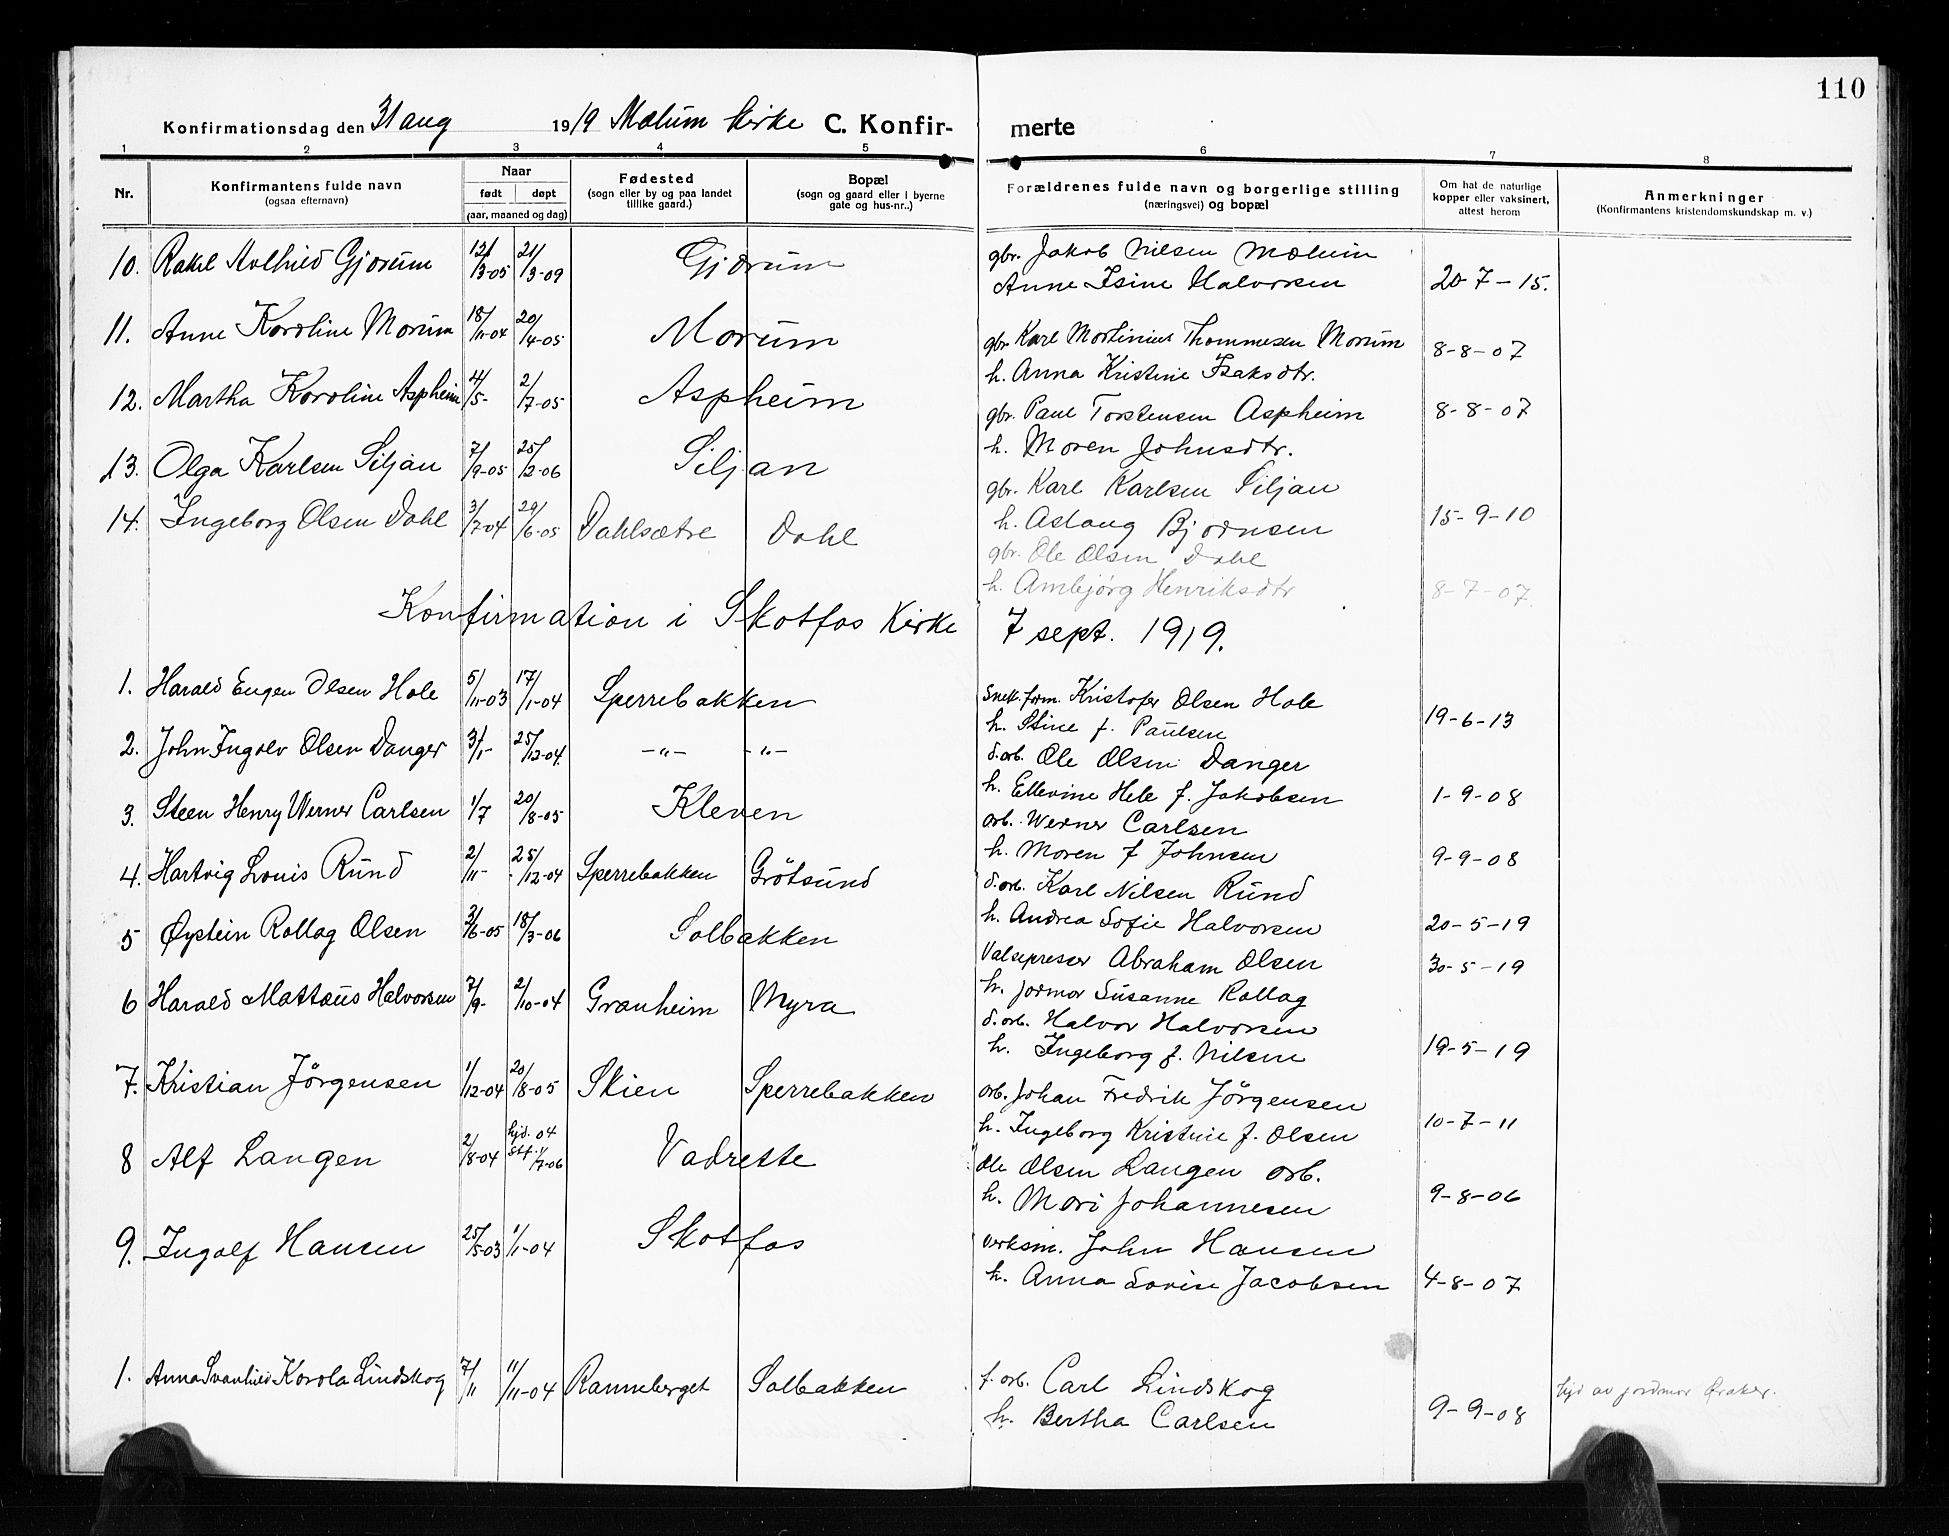 110
Konfirmationsdag den 31 aug 1919 Mælum kirke C. Konfir- merte
1 2 3 4 5 6 7 8
Nr. Konfirmantens fulde navn (ogsaa efternavn) Naar født døpt (aar, maaned og dag) Fødested (sogn eller by og paa landet tillike gaard.) Bopæl (sogn og gaard eller i byerne gate og hus-nr..) Forældrenes fulde navn og borgerlige stilling (næringsvei) og bopæl Om hat de naturlige kopper eller vaksinert, attest herom Anmerkninger (Konfirmantens kristendomskundskap m. v.)
10. Rakel Avlhild Gjærum 12/3-05 21/3-09 Gjærum gbr. Jakob Nilsen Mælum
Anne Isine Halvorsen 20-7-15.
11. Anne Karoline Morum 18/11-04 20/4-05 Morum gbr. Karl Martinius Thommesen Morum
h. Anna Kristine Isaksdtr. 8-8-07
12. Martha Karoline Aspheim 4/5- 2/7-05 Aspheim gbr. Paul Torstensen Aspheim 8-8-07
h. Maren Johnsdtr.
13. Olga Karlsen Siljan 7/9-05 25/12-06 Siljan gbr. Karl Karlsen Siljan
h. Aslaug Bjørnsen 15-9-10
14. Ingeborg Olsen Dahl 3/7-04 29/6-05 Dahlsætre Dahl gbr. Ole Olsen Dahl
h. Ambjørg Henriksdtr 8-7-07.
Konfirmation i Skotfos Kirke 7 sept. 1919.
1. Harald Eugen Olsen Hole 5/11-03 17/1-04 Sperrebakken Snek. form. Kristofer Olsen Hole
h. Stine f. Paulsen 19-6-13
2. John Ingolv Olsen Danger 3/1- 25/12-04. -"- -"- d. arb. Ole Olsen Danger
h. Ellevine Hele f. Jakobsen 1-9-08
3. Steen Henry Werner Carlsen 1/7 20/8-05 Kleven arb. Werner Carlsen
h. Maren f Johnsen 9-9-08
4. Hartvig Louis Rund 2/11- 25/12-04 Sperrebakken Grötsund d. arb. Karl Nilsen Rund
h. Andrea Sofie Halvorsen 20-5-19
5 Øystein Rollag Olsen 3/6-05 18/3-06 Solbakken Valsepresser Abraham Olsen 30-5-19
h. jordmor Susanne Rollag
6 Harald Mattæus Halvorsen 7/9- 2/10-04 Granheim Myra d. arb. Halvor Halvorsen
h. Ingeborg f. Nilsen 19-5-19
7. Kristian Jörgensen 1/12-04 20/8-05 Skien Sperrebakken arb. Johan Fredrik Jörgensen
h. Ingeborg Kristine f. Olsen 10-7-11
8 Alf Langen 2/8-04 hjd. 04 stf. 1/7-06 Vadrette Ole Olsen Langen arb.
h. Mari Johannesen 9-8-06
9. Ingolf Hansen 25/5-03 1/1-04 Skotfos Verksm. John Hansen
h. Anna Lovise Jacobsen 4-8-07
1. Anna Svanhild Karola Lindskog 7/11 11/11-04 Ranneberget Solbakken f. arb. Carl Lindskog
h. Bertha Carlsen 9-9-08 hjd av jordmor Øraker.